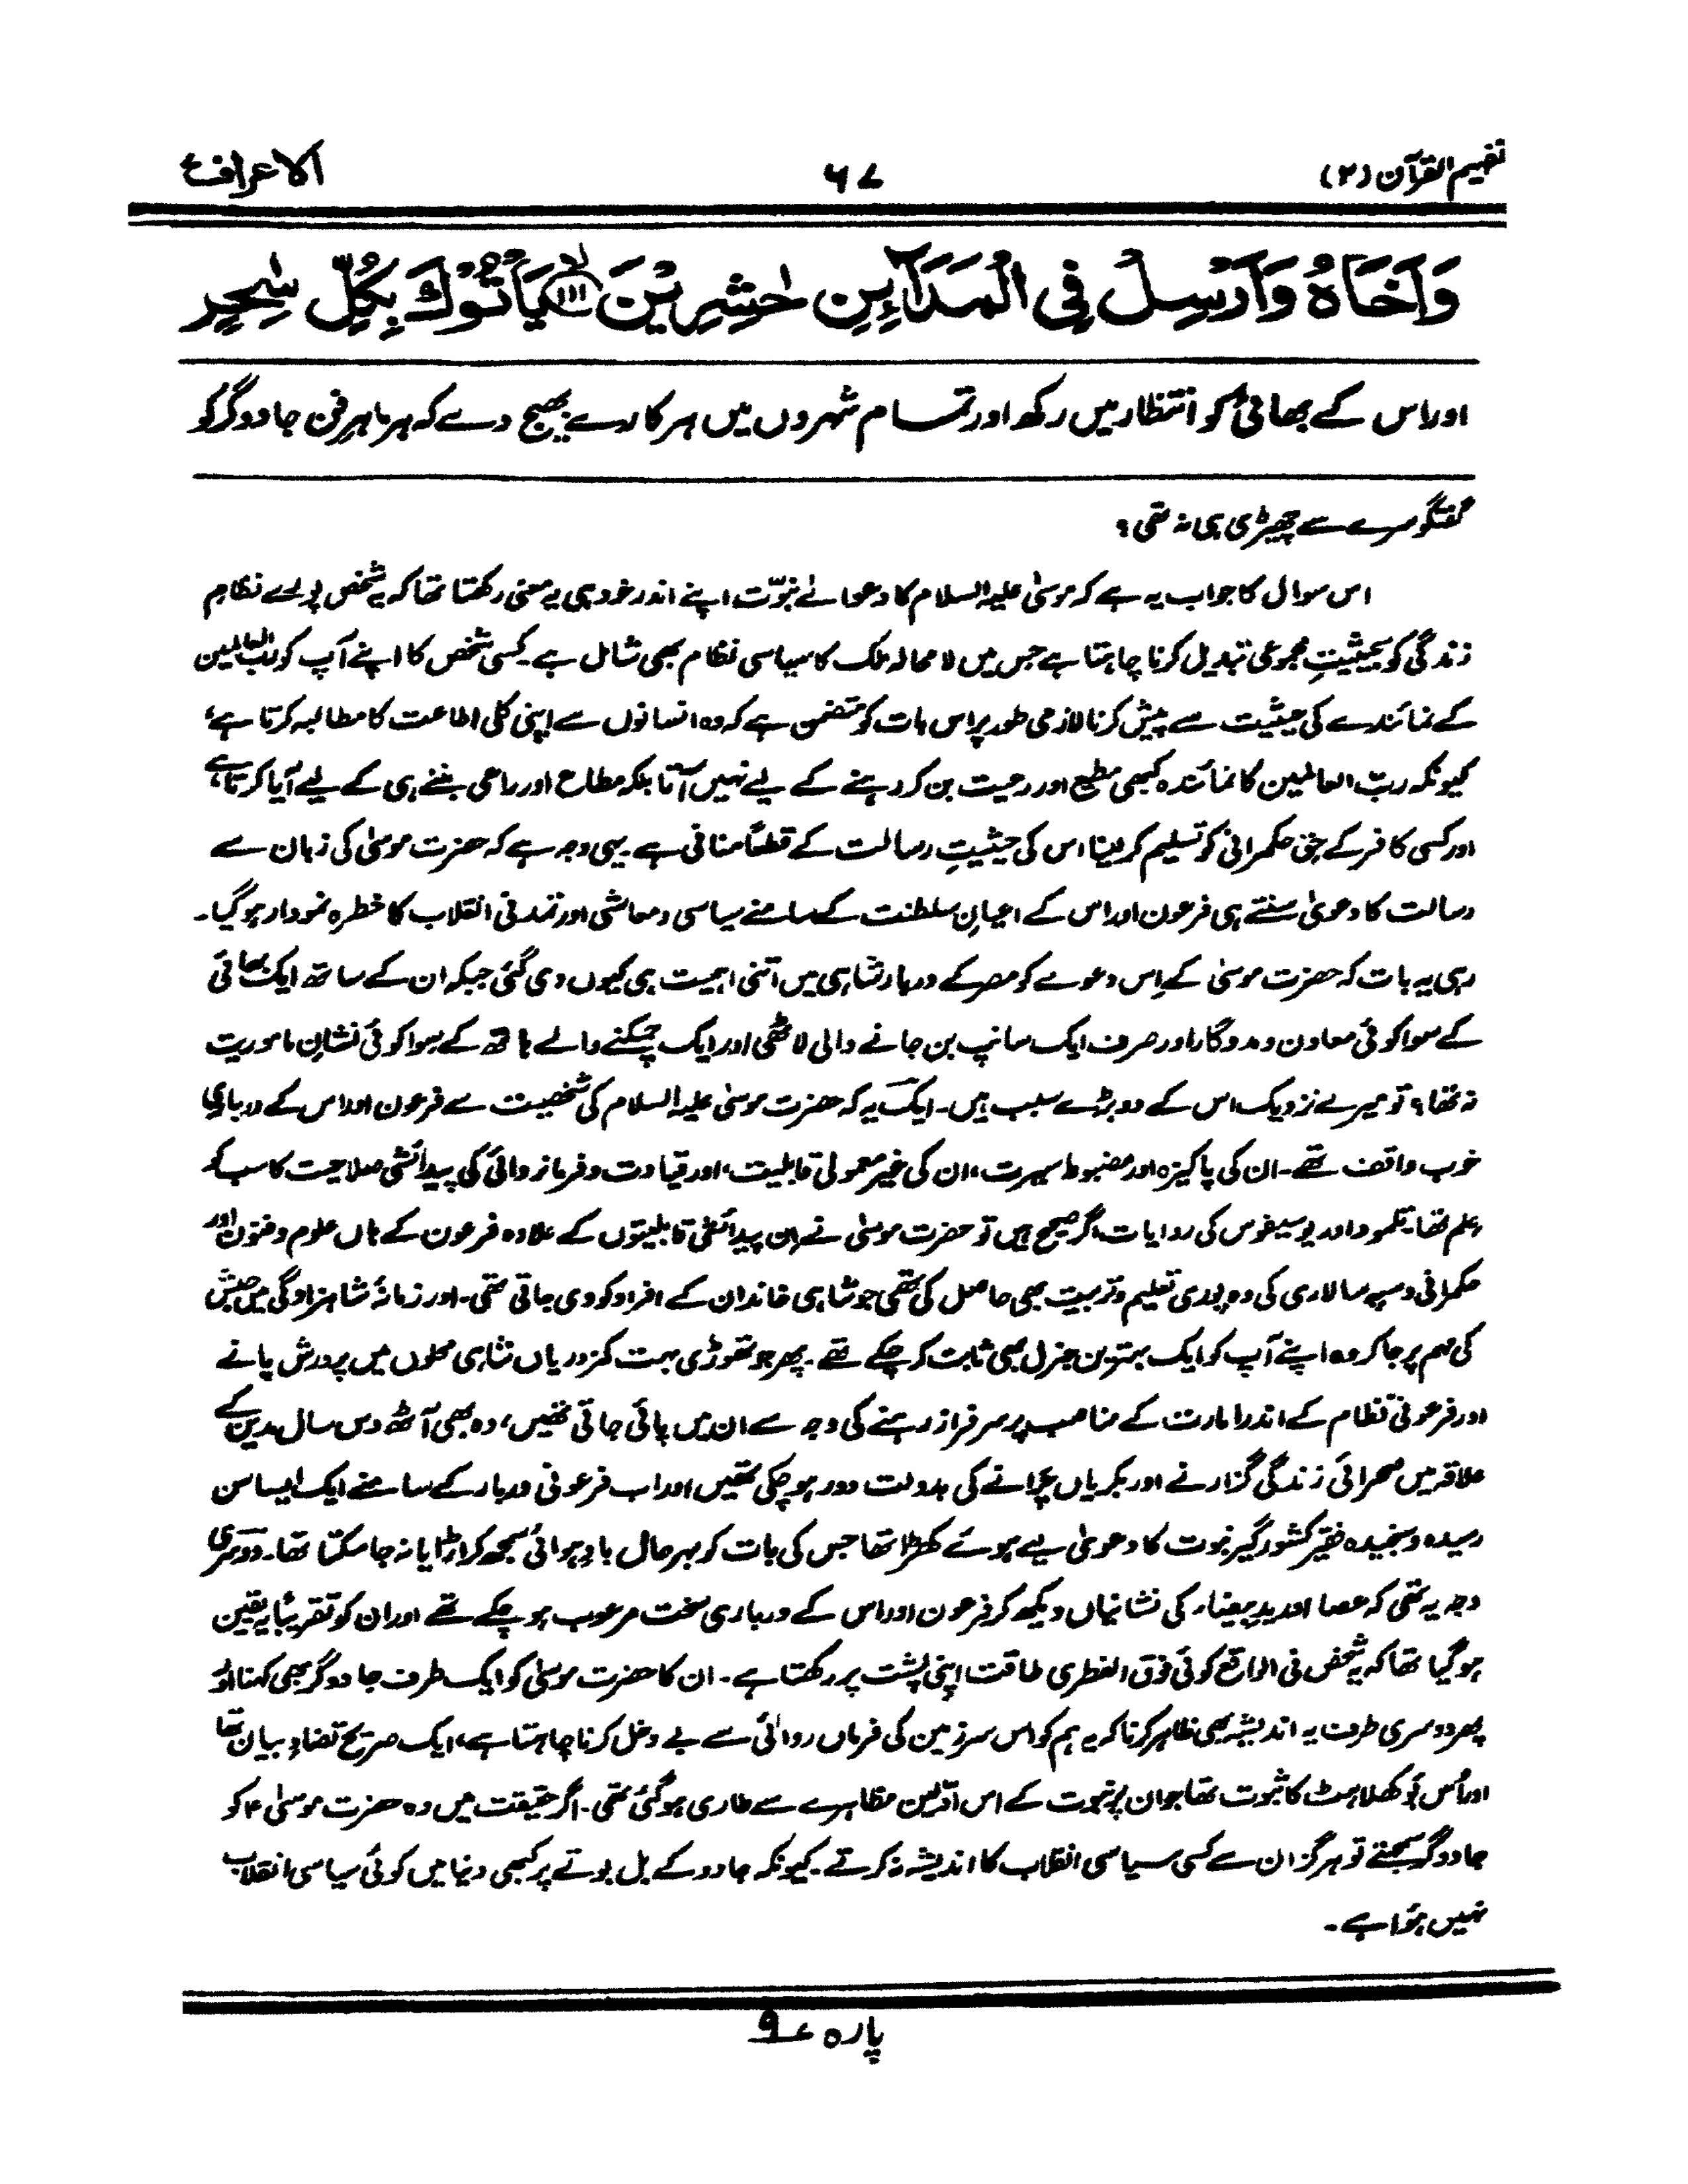 تفہیم القرآن (۲)
۶۷
الاعراف ۷
وَاَخَاهُ وَاَرْسِلْ فِی الْمَدَآىِٕنِ حٰشِرِیْنَ ﴿۱۱۱﴾ یَاْتُوْكَ بِكُلِّ سٰحِرٍ
اور اس کے بھائی کو انتظار میں رکھ اور تمام شہروں میں ہرکارے بھیج دے کہ ہر ماہرِ فن جادوگر کو
گفتگو سرے سے چھیڑی ہی نہ تھی؟
اس سوال کا جواب یہ ہے کہ موسیٰ علیہ السلام کا دعوائے نبوّت اپنے اندر خود ہی یہ معنی رکھتا تھا کہ یہ شخص پورے نظامِ
زندگی کو بحیثیتِ مجموعی تبدیل کرنا چاہتا ہے جس میں لامحالہ ملک کا سیاسی نظام بھی شامل ہے۔ کسی شخص کا اپنے آپ کو رب العالمین
کے نمائندے کی حیثیت سے پیش کرنا لازمی طور پر اس بات کو متضمن ہے کہ وہ انسانوں سے اپنی کلی اطاعت کا مطالبہ کرتا ہے،
کیونکہ ربّ العالمین کا نمائندہ کبھی مطیع اور رعیت بن کر رہنے کے لیے نہیں آتا بلکہ مطاع اور راعی بننے ہی کے لیے آیا کرتا ہے،
اور کسی کافر کے حقِ حکمرانی کو تسلیم کر لینا اس کی حیثیتِ رسالت کے قطعاً منافی ہے۔ یہی وجہ ہے کہ حضرت موسیٰ کی زبان سے
رسالت کا دعویٰ سنتے ہی فرعون اور اس کے اعیانِ سلطنت کے سامنے سیاسی و معاشی اور تمدنی انقلاب کا خطرہ نمودار ہو گیا۔
رہی یہ بات کہ حضرت موسیٰ کے اِس دعوے کو مصر کے دربار شاہی میں اتنی اہمیت ہی کیوں دی گئی جبکہ ان کے ساتھ ایک بھائی
کے سوا کوئی معاون و مددگار اور صرف ایک سانپ بن جانے والی لاٹھی اور ایک چمکنے والے ہاتھ کے سوا کوئی نشانِ ماموریت
نہ تھا؟ تو میرے نزدیک اس کے دو بڑے سبب ہیں۔ ایک یہ کہ حضرت موسیٰ علیہ السلام کی شخصیت سے فرعون اور اس کے درباری
خوب واقف تھے۔ ان کی پاکیزہ اور مضبوط سیرت، ان کی غیر معمولی قابلیت، اور قیادت و فرمانروائی کی پیدائشی صلاحیت کا سب کو
علم تھا۔ تلمود اور یوسیفوس کی روایات اگر صحیح ہیں تو حضرت موسیٰ نے اِن پیدائشی قابلیتوں کے علاوہ فرعون کے ہاں علوم و فنون اور
حکمرانی و سپہ سالاری کی وہ پوری تعلیم و تربیت بھی حاصل کی تھی جو شاہی خاندان کے افراد کو دی جاتی تھی۔ اور زمانۂ شاہزادگی میں حبش
کی مہم پر جا کر وہ اپنے آپ کو ایک بہترین جنرل بھی ثابت کر چکے تھے۔ پھر جو تھوڑی بہت کمزوریاں شاہی محلوں میں پرورش پانے
اور فرعونی نظام کے اندر امارت کے مناصب پر سرفراز رہنے کی وجہ سے ان میں پائی جاتی تھیں، وہ بھی آٹھ دس سال مدین کے
علاقہ میں صحرائی زندگی گزارنے اور بکریاں چرانے کی بدولت دور ہو چکی تھیں اور اب فرعونی دربار کے سامنے ایک ایسا سن
رسیدہ و سنجیدہ فقیر کشور گیر نبوت کا دعویٰ لیے ہوئے کھڑا تھا جس کی بات کو بہرحال بادِ ہوائی سمجھ کر اڑایا نہ جا سکتا تھا۔ دوسری
وجہ یہ تھی کہ عصا اور یدِ بیضاء کی نشانیاں دیکھ کر فرعون اور اس کے درباری سخت مرعوب ہو چکے تھے اور ان کو تقریباً یہ یقین
ہو گیا تھا کہ یہ شخص فی الواقع کوئی فوق الفطری طاقت اپنی پشت پر رکھتا ہے۔ ان کا حضرت موسیٰ کو ایک طرف جادوگر بھی کہنا اور
پھر دوسری طرف یہ اندیشہ بھی ظاہر کرنا کہ یہ ہم کو اس سرزمین کی فرماں روائی سے بے دخل کرنا چاہتا ہے، ایک صریح تضادِ بیان تھا
اور اُس بوکھلاہٹ کا ثبوت تھا جو ان پر نبوت کے اس اوّلین مظاہرے سے طاری ہو گئی تھی۔ اگر حقیقت میں وہ حضرت موسیٰ ؑ کو
جادوگر سمجھتے تو ہرگز ان سے کسی سیاسی انقلاب کا اندیشہ نہ کرتے۔ کیونکہ جادو کے بل بوتے پر کبھی دنیا میں کوئی سیاسی انقلاب
نہیں ہوا ہے۔
پارہ ۹